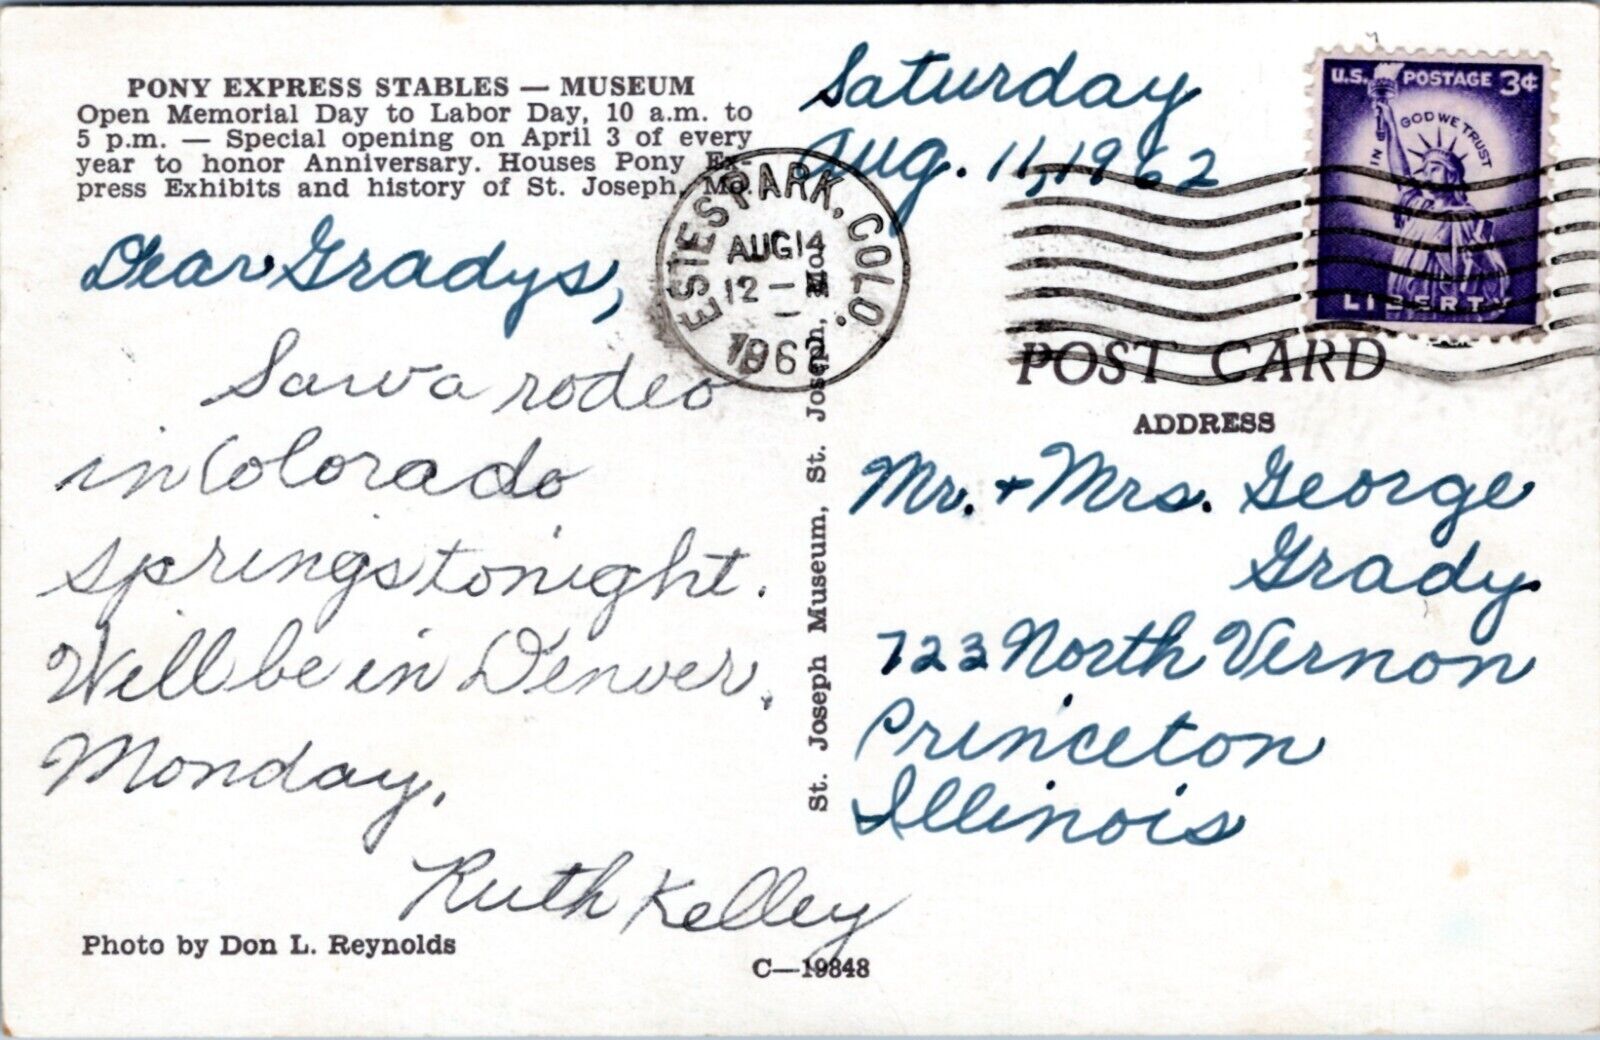 PONY EXPRESS STABLES — MUSEUM
Open Memorial Day to Labor Day, 10 a.m. to
5 p.m. — Special opening on April 3 of every
year to honor Anniversary. Houses Pony Ex-
press Exhibits and history of St. Joseph, Mo.
Saturday
Aug. 11, 1962
U.S. POSTAGE 3¢
IN GOD WE TRUST
LIBERTY
ESTES PARK, COLO.
AUG 14
12 — M
1962
Dear Gradys,
Saw a rodeo
in Colorado
springs tonight.
Will be in Denver,
Monday.
Ruth Kelley
Photo by Don L. Reynolds
C—19848
St. Joseph Museum, St. Joseph, Mo.
POST CARD
ADDRESS
Mr. + Mrs. George
Grady
723 North Vernon
Princeton
Illinois